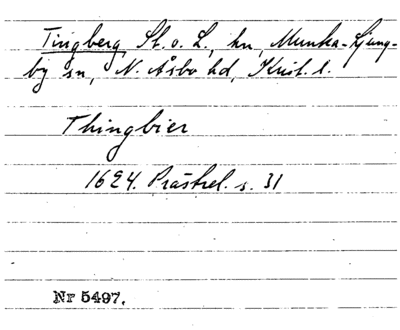 Tingberg, St. o. L., hn, Munka-Ljung-
by sn, N. Åsbo hd, Krist. l.
Thingbier
1624. Prästrel. s. 31
Nr 5497.